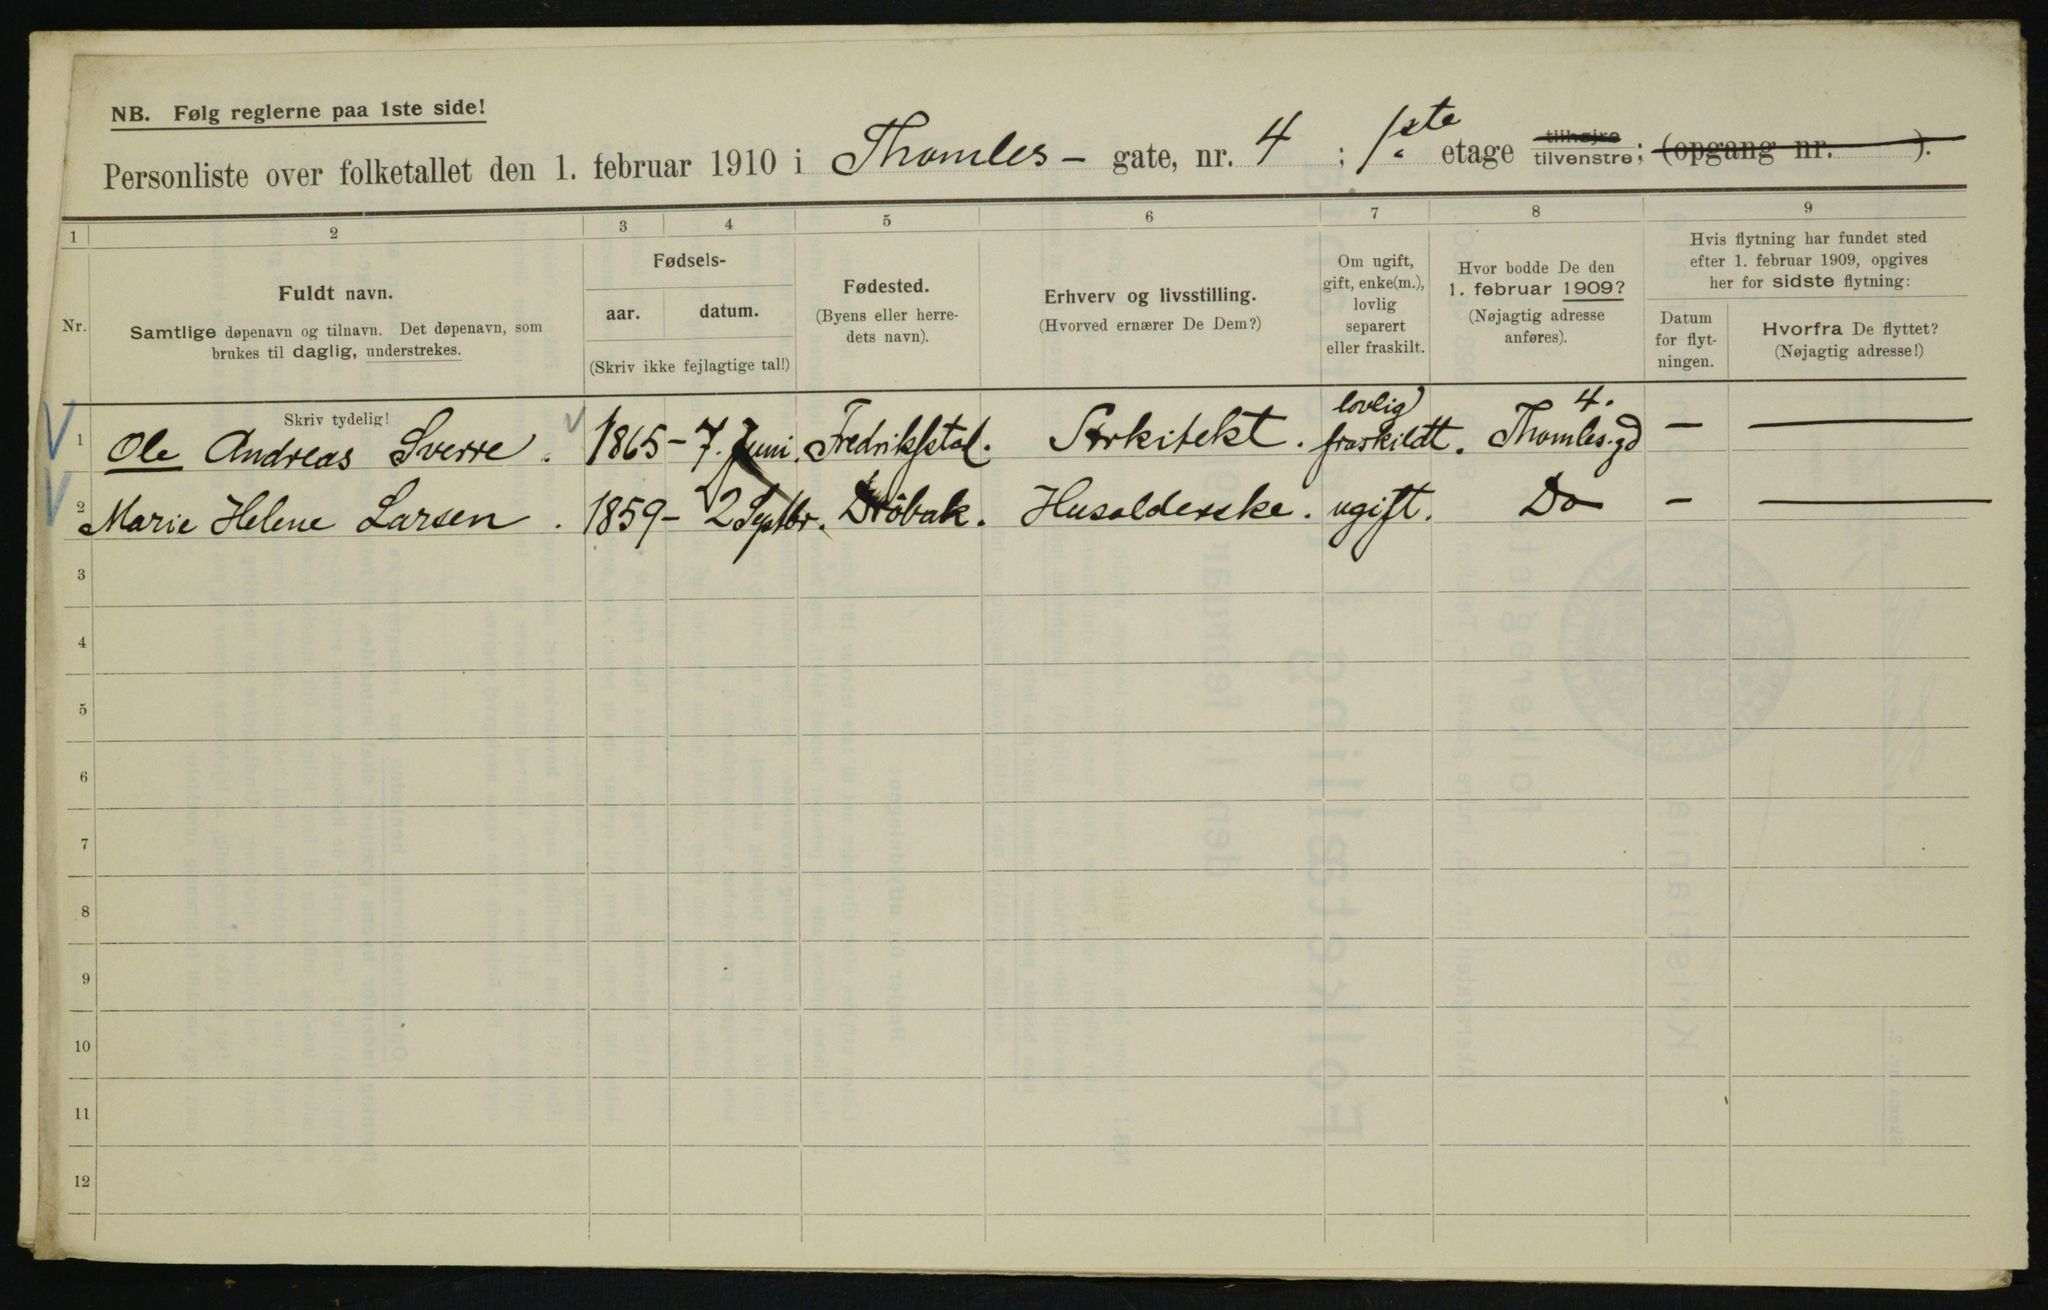 NB. Følg reglerne paa 1ste side!
Personliste over folketallet den 1. februar 1910 i Thomles - gate, nr. 4 ; 1ste etage tilhøjre tilvenstre; (opgang nr. ).
1 2 3 4 5 6 7 8 9
Nr.
Fuldt navn.
Samtlige døpenavn og tilnavn. Det døpenavn, som
brukes til daglig, understrekes.
Fødsels-
aar. datum.
(Skriv ikke fejlagtige tal!)
Fødested.
(Byens eller herre-
dets navn).
Erhverv og livsstilling.
(Hvorved ernærer De Dem?)
Om ugift,
gift, enke(m.),
lovlig
separert
eller fraskilt.
Hvor bodde De den
1. februar 1909?
(Nøjagtig adresse
anføres).
Hvis flytning har fundet sted
efter 1. februar 1909, opgives
her for sidste flytning:
Datum
for flyt-
ningen.
Hvorfra De flyttet?
(Nøjagtig adresse!)
Skriv tydelig!
1 Ole Andreas Sverre. 1865 - 7. Juni. Fredrikstad. Arkitekt. lovlig fraskildt. Thomles.gd 4. - -
2 Marie Helene Larsen. 1859 - 2 Septbr. Dröbak. Husolderske. ugift. Do - -
3
4
5
6
7
8
9
10
11
12